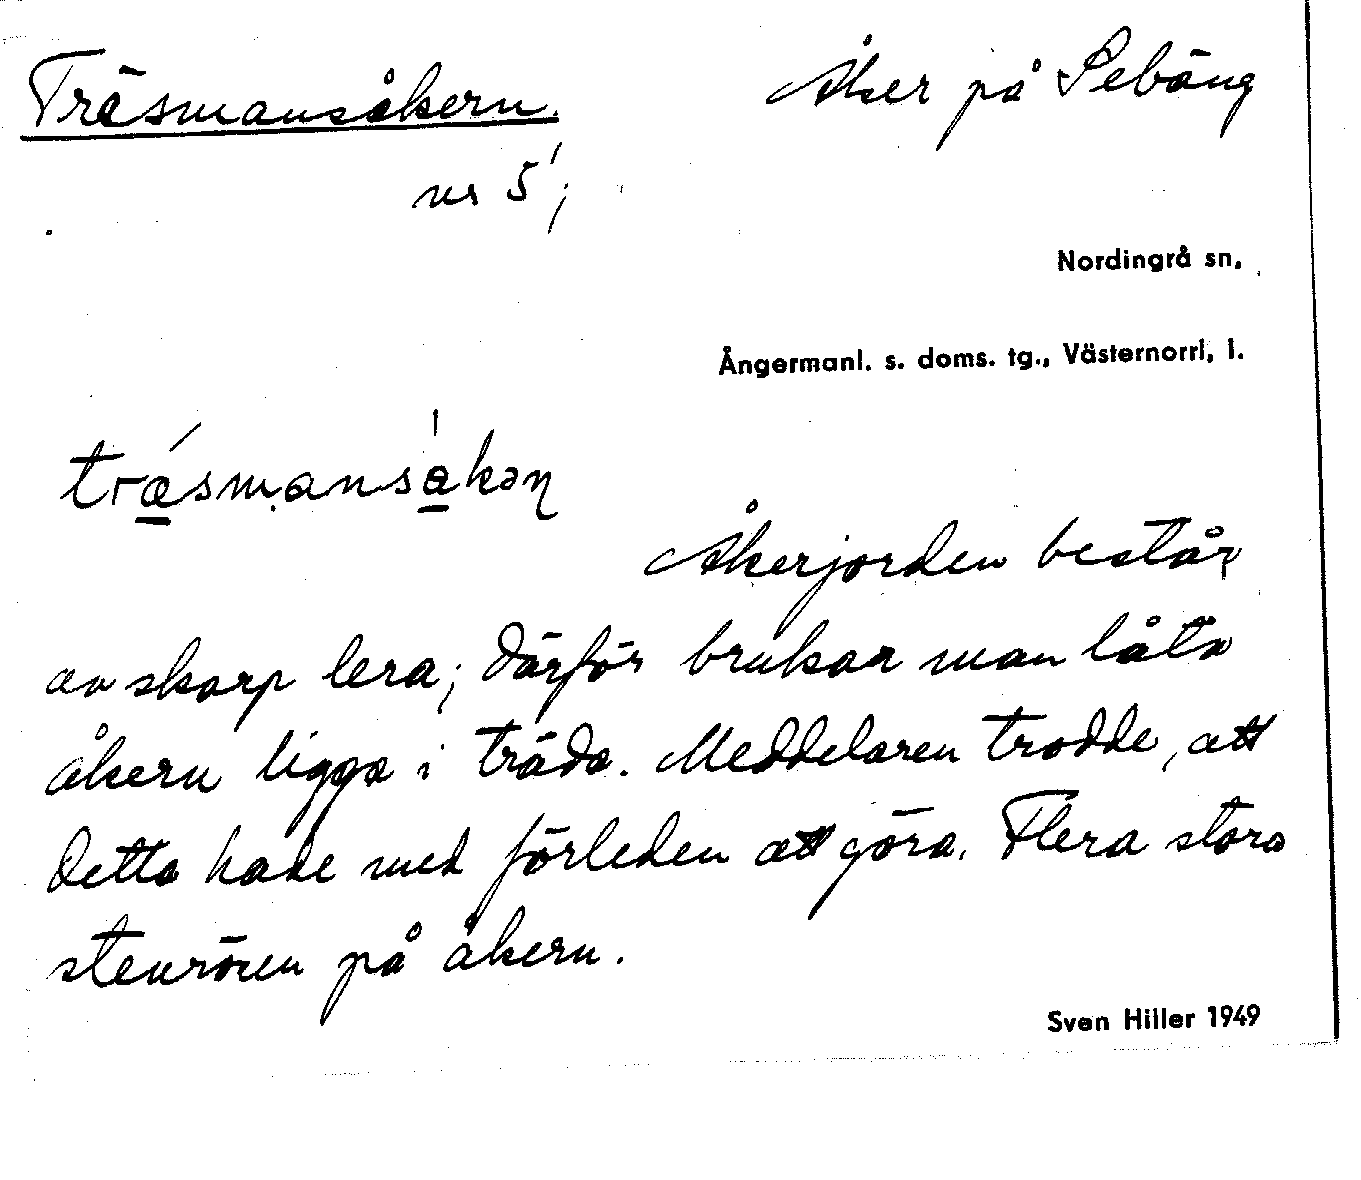 Träsmansåkern.
Åker på Sebäng
nr 5¹;
Nordingrå sn.
Ångermanl. s. doms. tg., Västernorrl. l.
træ̲smansa̲kəɳ
Åkerjorden består
av skarp lera; därför brukar man låta
åkern ligga i träda. Meddelaren trodde, att
detta hade med förleden att göra. Flera stora
stenrösen på åkern.
Sven Hiller 1949